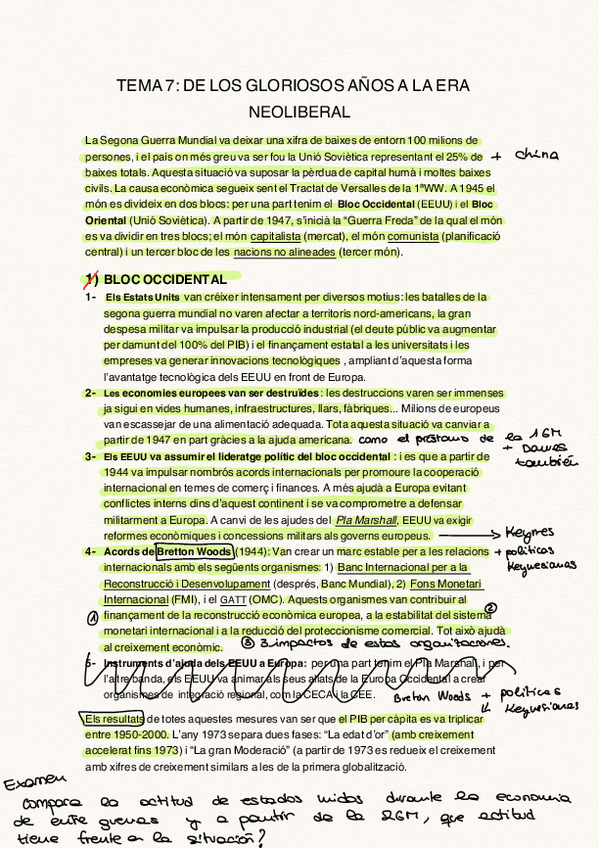 TEMA 7: DE LOS GLORIOSOS AÑOS A LA ERA
NEOLIBERAL
La Segona Guerra Mundial va deixar una xifra de baixes de entorn 100 milions de
persones, i el país on més greu va ser fou la Unió Soviètica representant el 25% de + China
baixes totals. Aquesta situació va suposar la pèrdua de capital humà i moltes baixes
civils. La causa econòmica segueix sent el Tractat de Versalles de la 1ªWW. A 1945 el
món es divideix en dos blocs: per una part tenim el Bloc Occidental (EEUU) i el Bloc
Oriental (Unió Soviètica). A partir de 1947, s'inicià la "Guerra Freda" de la qual el món
es va dividir en tres blocs; el món capitalista (mercat), el món comunista (planificació
central) i un tercer bloc de les nacions no alineades (tercer món).
1) BLOC OCCIDENTAL
1- Els Estats Units van créixer intensament per diversos motius: les batalles de la
segona guerra mundial no varen afectar a territoris nord-americans, la gran
despesa militar va impulsar la producció industrial (el deute públic va augmentar
per damunt del 100% del PIB) i el finançament estatal a les universitats i les
empreses va generar innovacions tecnològiques , ampliant d'aquesta forma
l'avantatge tecnològica dels EEUU en front de Europa.
2- Les economies europees van ser destruïdes: les destruccions varen ser immenses
ja sigui en vides humanes, infraestructures, llars, fàbriques... Milions de europeus
van escassejar de una alimentació adequada. Tota aquesta situació va canviar a
partir de 1947 en part gràcies a la ajuda americana. como el préstamo de la 1GM
+ Dawes
también
3- Els EEUU va assumir el lideratge polític del bloc occidental : i es que a partir de
1944 va impulsar nombrós acords internacionals per promoure la cooperació
internacional en temes de comerç i finances. A més ajuda a Europa evitant
conflictes interns dins d'aquest continent i se va comprometre a defensar
militarment a Europa. A canvi de les ajudes del Pla Marshall, EEUU va exigir
reformes econòmiques i concessions militars als governs europeus. → Keynes
4- Acords de Bretton Woods (1944): Van crear un marc estable per a les relacions + políticas
internacionals amb els següents organismes: 1) Banc Internacional per a la Keynesianas
Reconstrucció i Desenvolupament (després, Banc Mundial), 2) Fons Monetari
Internacional (FMI), i el GATT (OMC). Aquests organismes van contribuir al
① finançament de la reconstrucció econòmica europea, a la estabilitat del sistema ②
monetari internacional i a la reducció del proteccionisme comercial. Tot això ajudà
al creixement econòmic. ③ 3 impactos de estas organizaciones.
5- Instruments d'ajuda dels EEUU a Europa: per una part tenim el Pla Marshall, i per
l'altre banda, els EEUU va animar als seus aliats de la Europa Occidental a crear
organismes de integració regional, com la CECA i la CEE. Breton Woods + políticas
↳ Keynesianas
Els resultats de totes aquestes mesures van ser que el PIB per càpita es va triplicar
entre 1950-2000. L'any 1973 separa dues fases: "La edat d'or" (amb creixement
accelerat fins 1973) i "La gran Moderació" (a partir de 1973 es redueix el creixement
amb xifres de creixement similars a les de la primera globalització.
Examen
compara la actitud de estados unidos durante la economia
de entre guerras y a partir de la 2GM, que actitud
tiene frente a la situación?